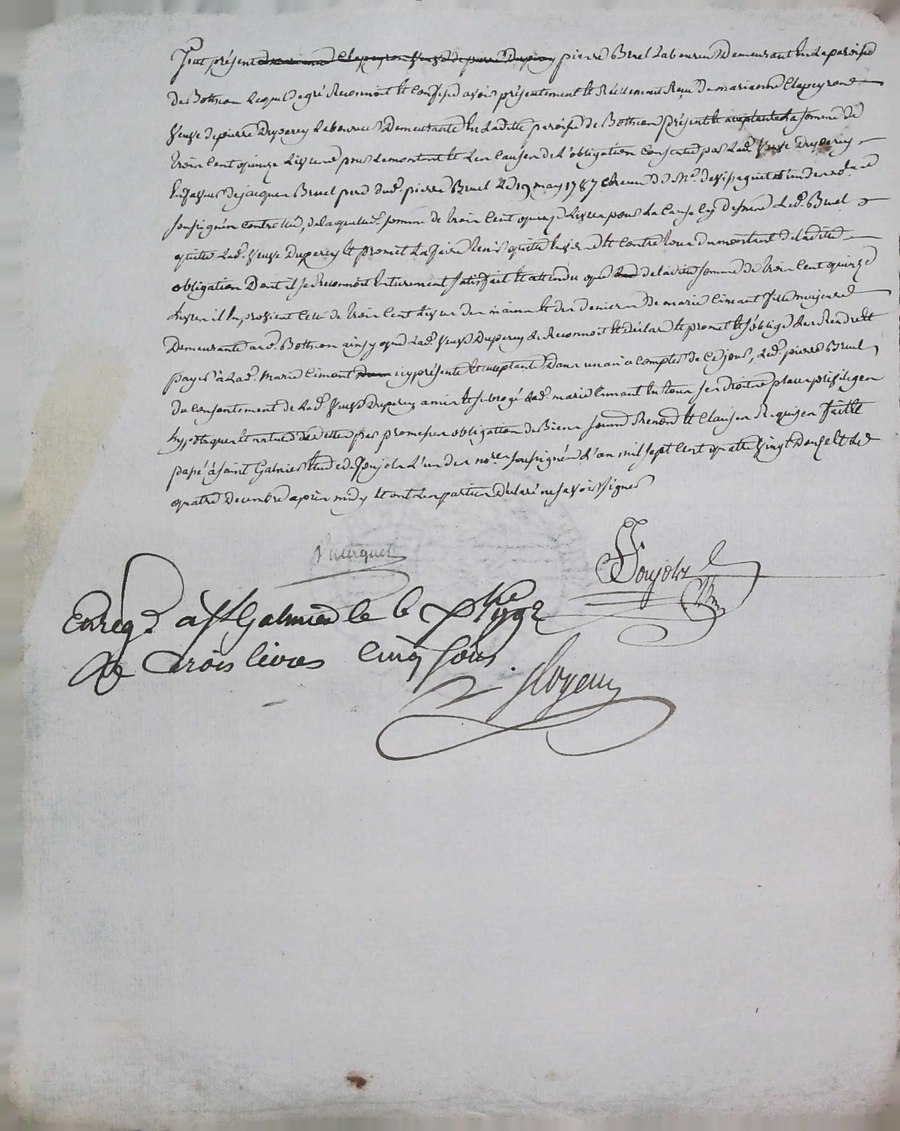 fut présent marianne Clapeyron Veuve de pierre Duperey pierre Bruel Laboureur Demeurant En La paroisse
de Bothéon Lequel de gré Reconnoit Et Confesse avoir présentement Et Réellement Reçu de marianne Clapeyrone
Veuve de pierre Duperey Laboureur Demeurante En Ladite paroisse de Bothéon présente Et acceptante La somme de
trois Cent quinze Livres pour Le montant Et Les Causes de L'obligation Consentie par Lad. Veuve Duperey
En faveur de jacques Bruel perd dud. pierre Bruel Le 19 may 1787 Reçu Et Lun des no.res
soussignés Contrôlée, de laquelle somme de trois Cent quinze Livres pour La Cause Cy dessus Led. Bruel
quitte Lad. Veuve Duperey Et promet La faire tenir quitte Envers Et Contre tous du montant de ladite
obligation Dont il se Reconnoit Entierement satisfait Et attendu que de ladite somme de trois Cent quinze
Livres il En provient Celle de trois Cent Livres des mains Et des deniers De marie Limant fille majeure
Demeurante aud. Bothéon ainsy que Lad. Veuve Duperey Le Reconnoit Et déclare Et promet Et s'oblige de Rendre Et
payer à Lad. Marie Limant icy présente Et acceptante Dans un an a Compter de Ce jour, Led. pierre Bruel
du Consentement de Lad. Veuve Duperey a mis Et subrogé Lad. marie Limant En tous ses droits place privileges
hypoteques Et nature de dette par promesses obligation de Biens soumis Renon.ts Et Clauses Requises faitte
passé à saint Galmier Etude de Ponjols L'un des no.res soussignés L'an mil sept Cent quatre Vingt douze Et Le
quatre Decembre après midy Et ont Les parties Déclaré ne savoir signer
Ponjols
Enreg.é à St Galmier le 6 Xbre 1792
Re trois livres Cinq sous.